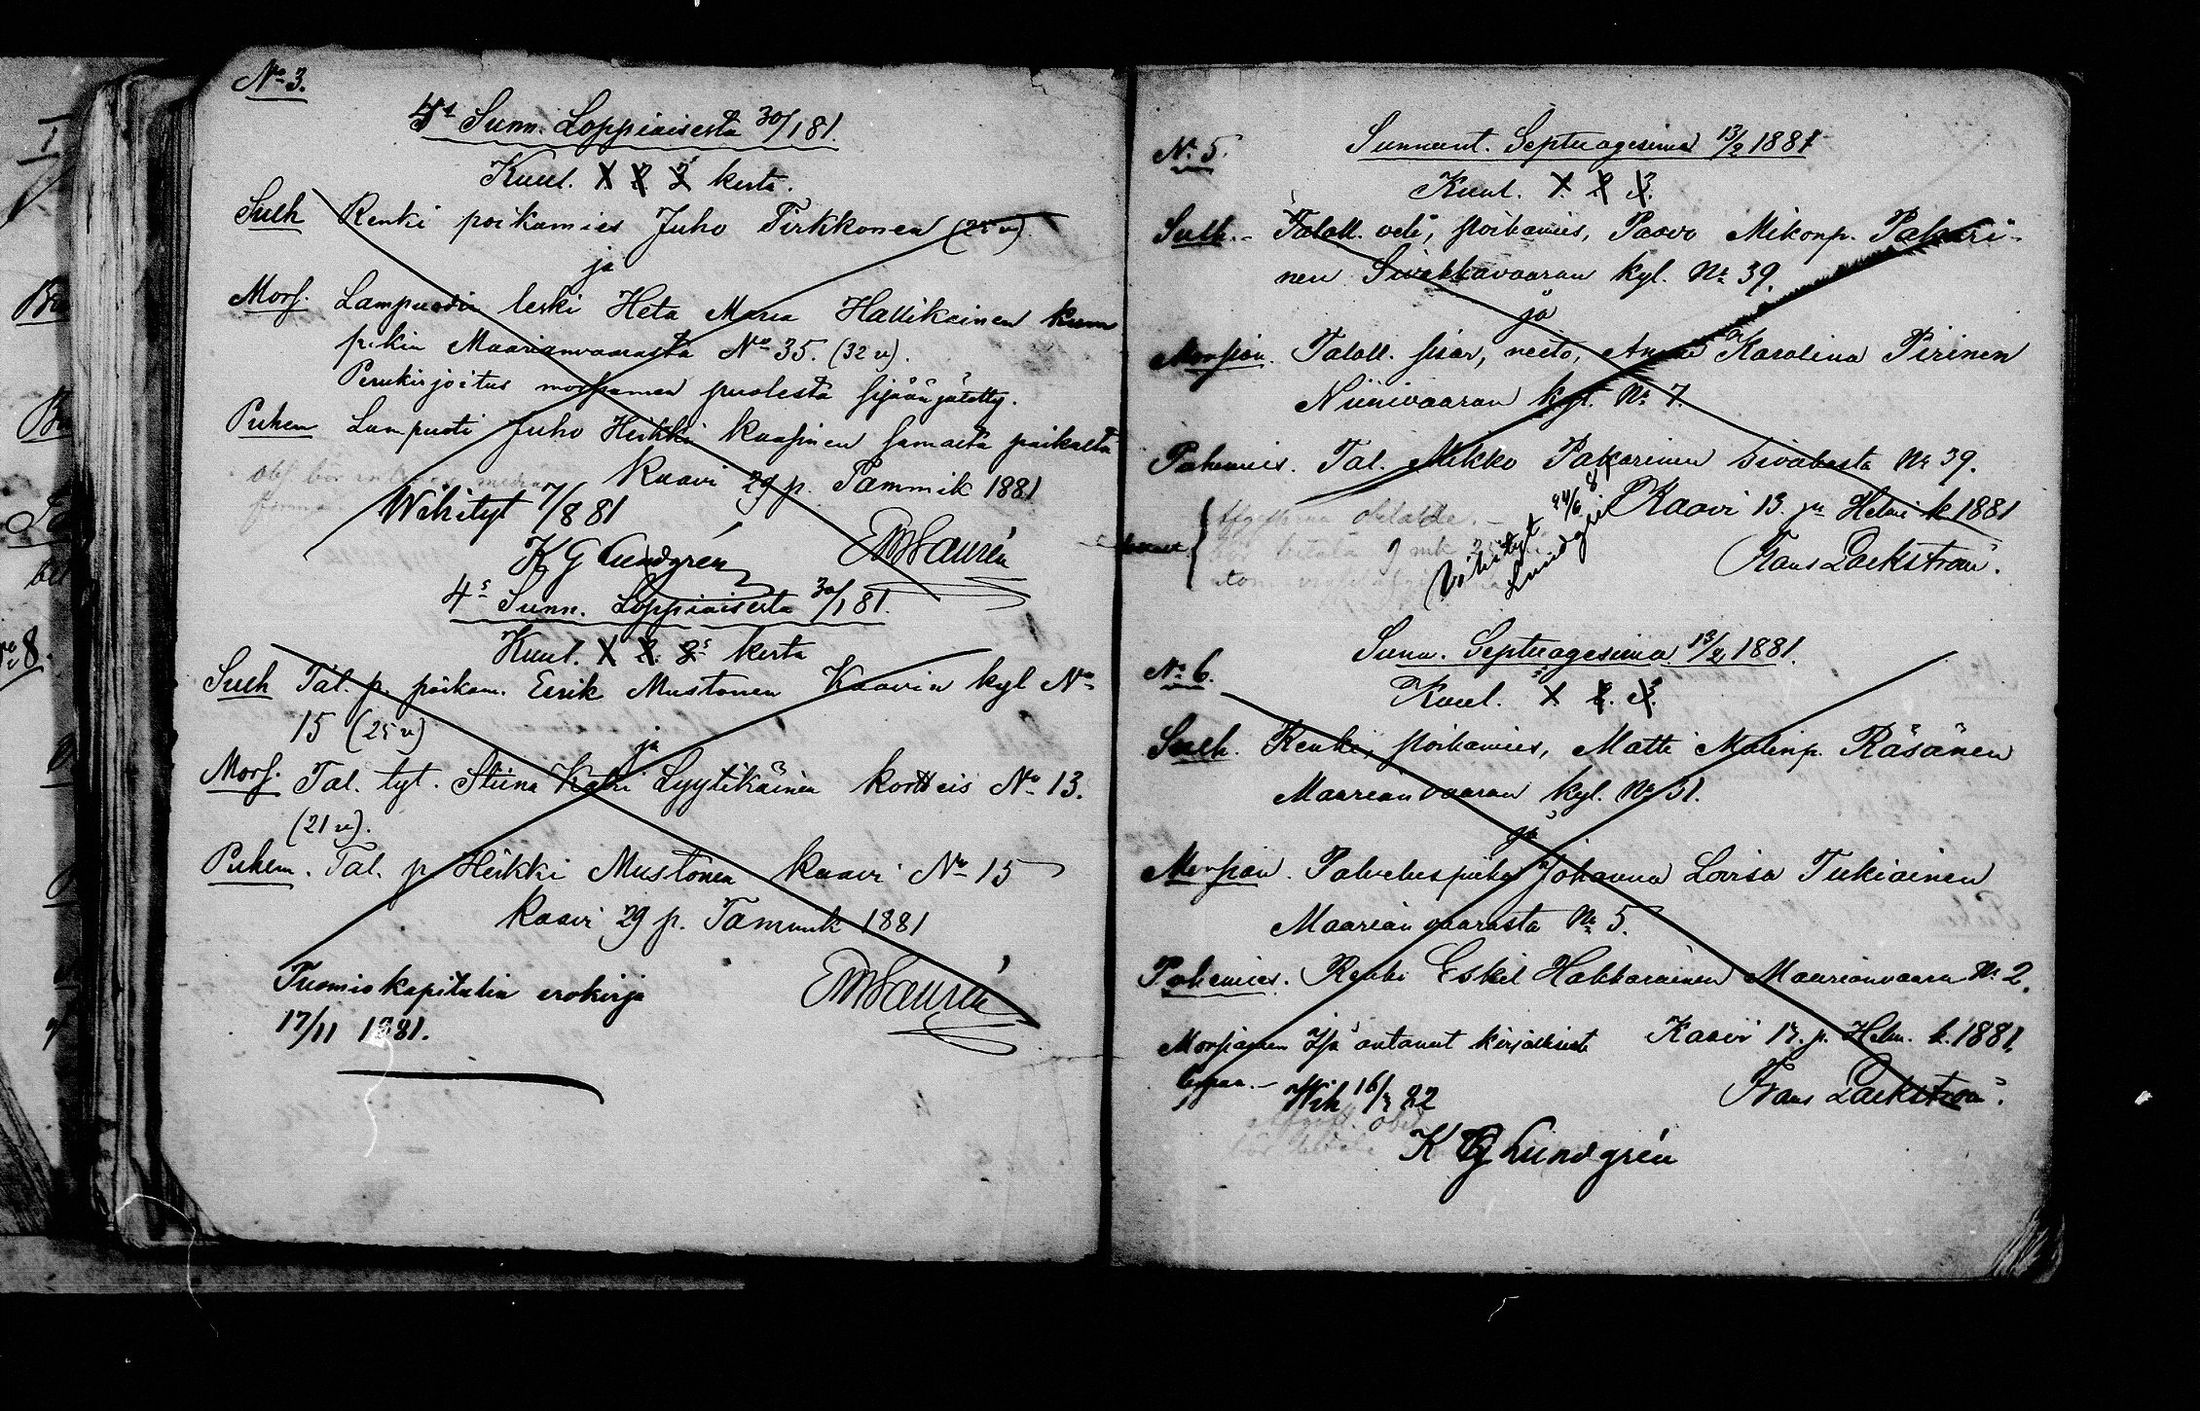 No 3.
4s Sunn. Loppiaisesta 30/1 81.
Kuul. 1 2 3 kerta.
Sulh Renki poikamies Juho Tirkkonen (25 v)
ja
Mors. Lampuodin leski Heta Maria Hallikainen kum
pikin Maarianvaarasta No 35. (32 v).
Perukirjoitus morsiamen puolesta sisäänjätetty.
Puhem Lampuoti Juho Heikki Kaasinen samasta paikasta
Kaavi 29 p. Tammik 1881
Wihityt 7/8 81
K G Lundgrén
4s Sunn. Loppiaisesta 30/1 81.
Kuul. 1 2. 3s kerta
Sulh Tal. p. poikam. Eerik Mustonen Kaavin kyl No
15 (25 v)
ja
Mors. Tal. tyt. Stiina Katri Lyytikäinen No 13.
(21 v).
Puhem. Tal. p Heikki Mustonen Kaavi No 15
Kaavi 29 p. Tammik 1881
Tuomiokapitulin erokirja
17/11 1881.
No 5. Sunnunt. Septuagesima 13/2 1881
Kuul. 1. 2 3.
Sulh. - Taloll. veli, poikamies, Paavo Mikonp. Pakari-
nen Sivakkavaaran kyl. No 39.
ja
Morsian. Taloll. sisar, neito, Anna Karolina Pirinen
Niinivaaran kyl. No 7.
Puhemies. Tal. Mikko Pakarinen Sivakasta No 39.
Kaavi 13. p. Helmi k 1881
Wihityt 24/6 81
Lundgrén
Frans Lackström.
Sunn. Septuagesima 13/2 1881.
No 6.
Kuul. 1 2. 3.
Sulh. Renki, poikamies, Matti Matinp. Räsänen
Maarianvaaran kyl. No 31.
ja
Morsian. Palveluspiika Johanna Lovisa Tukiainen
Maarianvaarasta No 5.
Puhemies. Renki Eskil Hakkarainen Maarianvaara No 2.
Morsiamen Isä antanut kirjallisesti Kaavi 13. p. Helm. k. 1881.
Frans Lackström.
Wih 16/ 82
K G Lundgrén